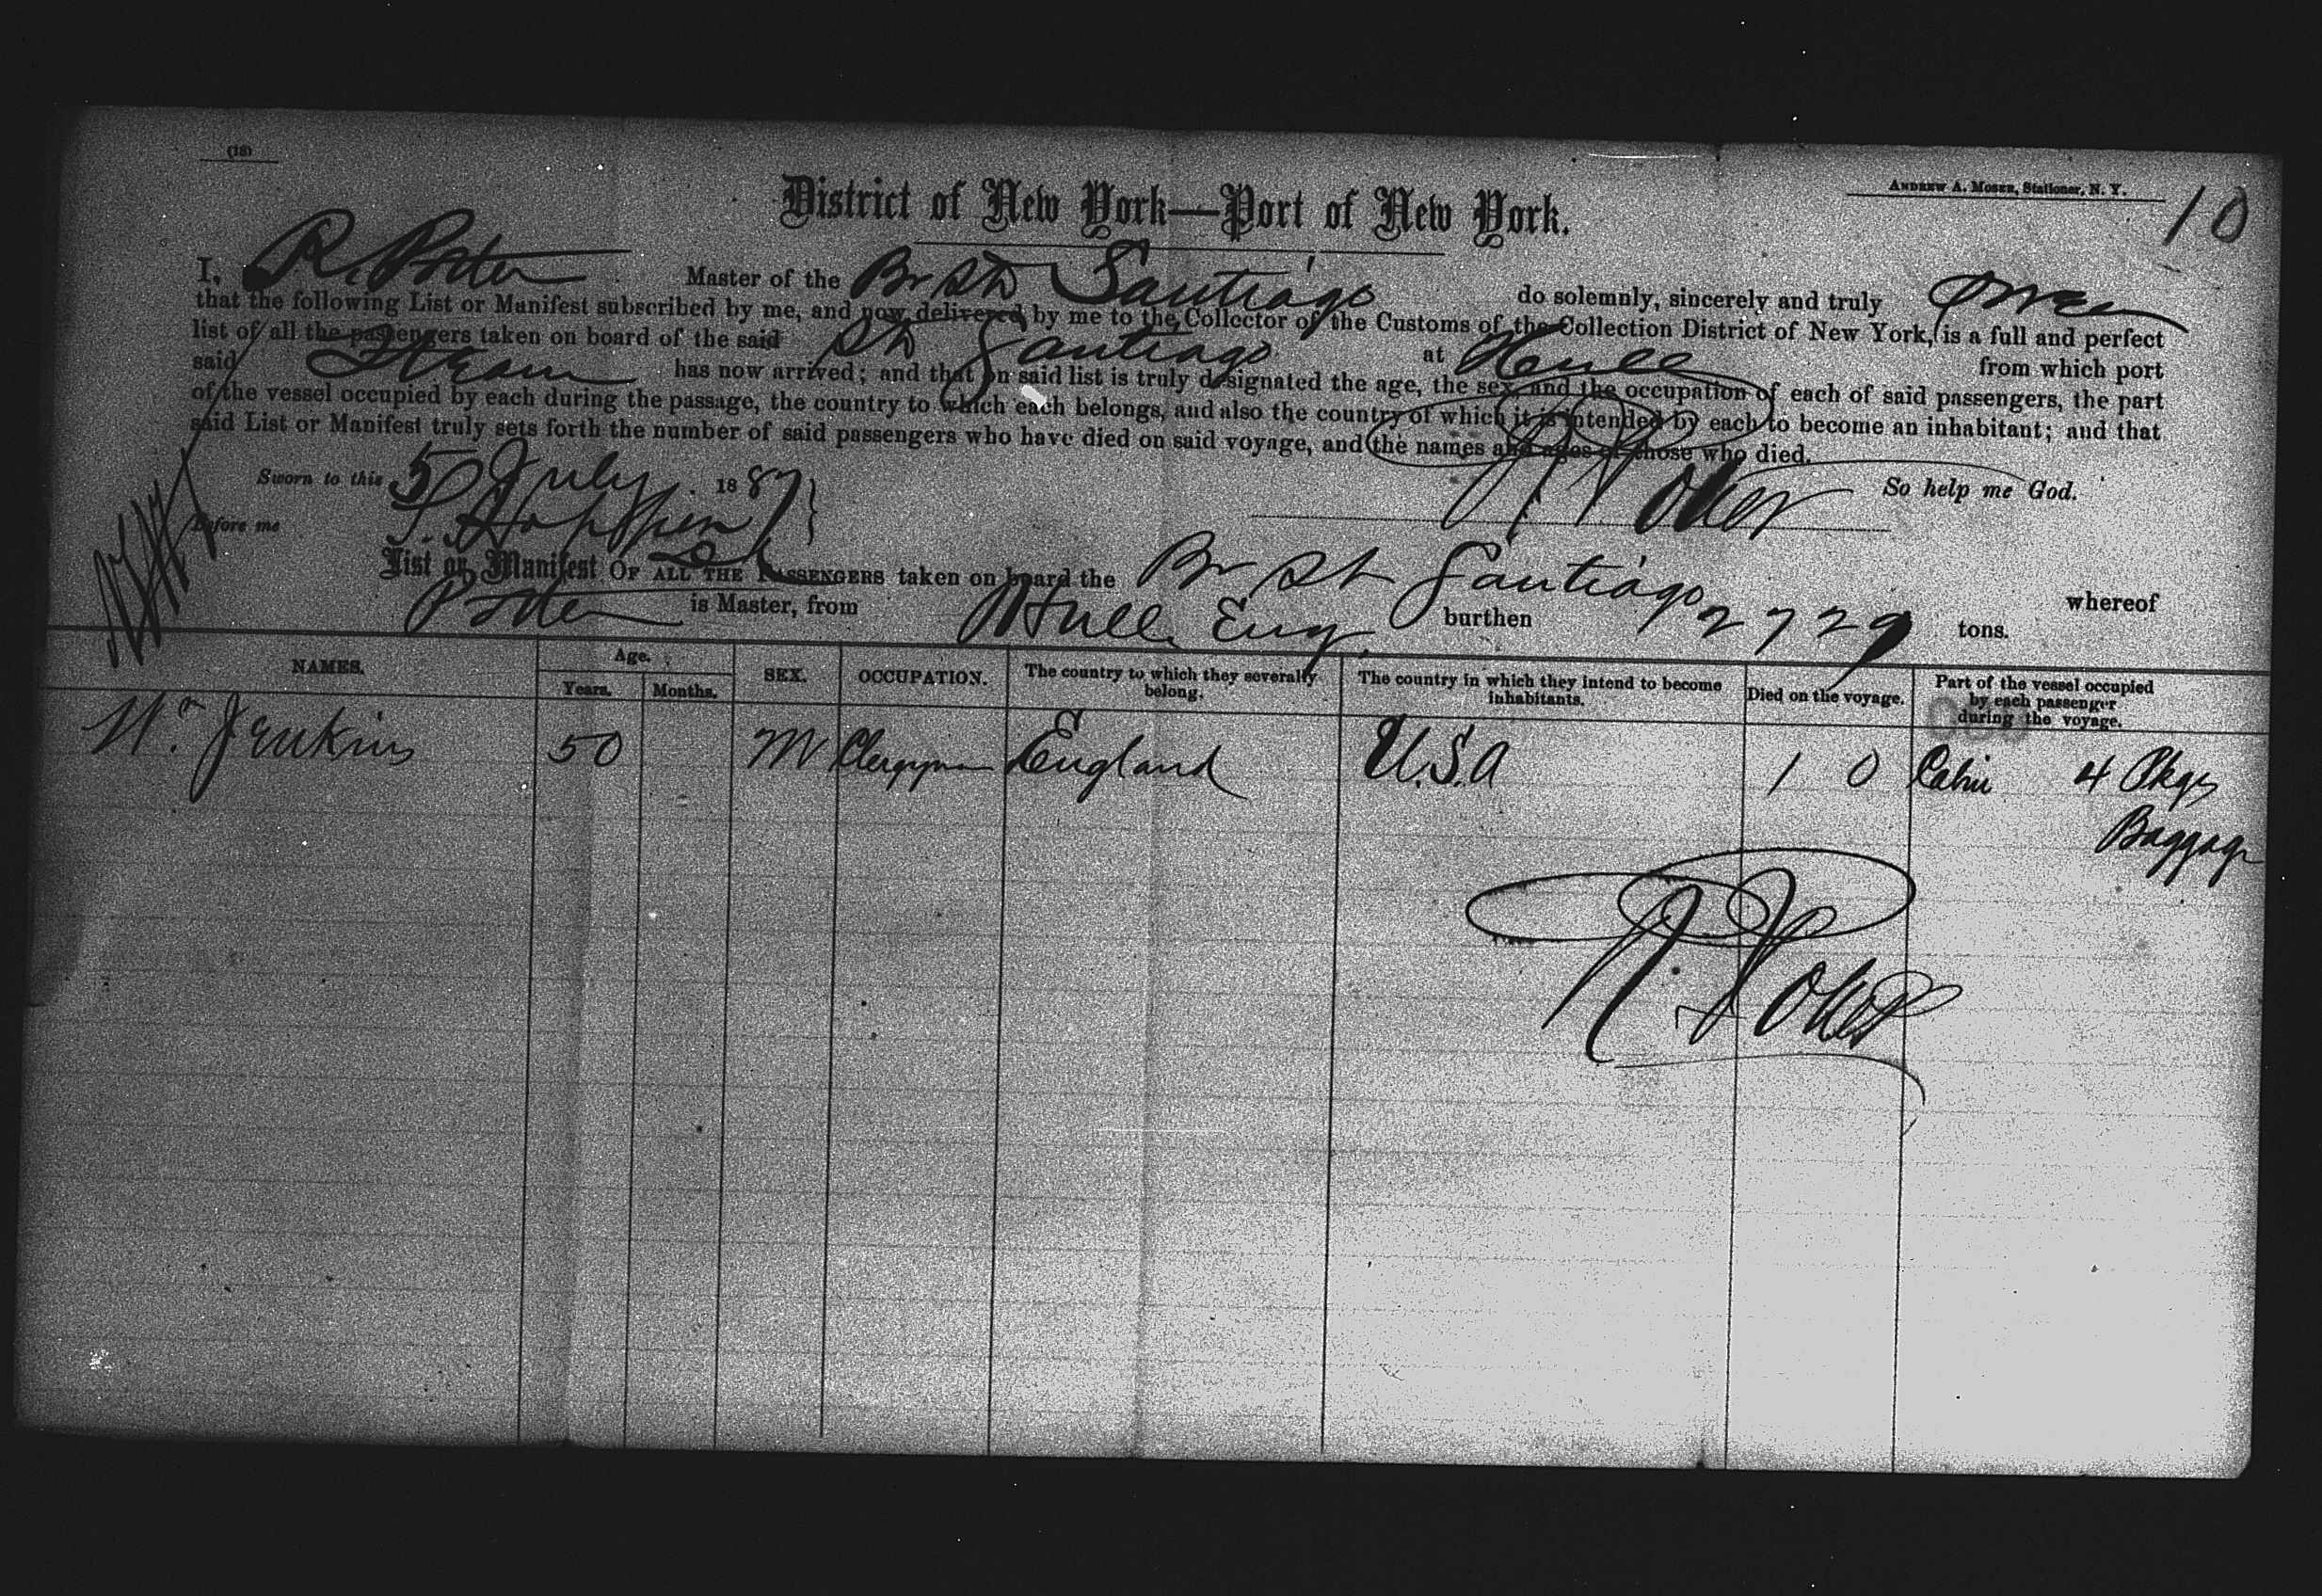 (18)
ANDREW A. MOSER, Stationer, N. Y.
10
District of New York—Port of New York.
I, R. Potter Master of the Br Str Santiago do solemnly, sincerely and truly swear
that the following List or Manifest subscribed by me, and now delivered by me to the Collector of the Customs of the Collection District of New York, is a full and perfect
list of all the passengers taken on board of the said Str Santiago at Hull from which port
said Steam has now arrived; and that on said list is truly designated the age, the sex and the occupation of each of said passengers, the part
of the vessel occupied by each during the passage, the country to which each belongs, and also the country of which it is intended by each to become an inhabitant; and that
said List or Manifest truly sets forth the number of said passengers who have died on said voyage, and the names and ages of those who died.
Sworn to this 5 July 1887 So help me God.
Before me R. Potter
List or Manifest OF ALL THE PASSENGERS taken on board the Br Str Santiago whereof
Potter is Master, from Hull Eng burthen 2729 tons.
NAMES. Age. Years. Months. SEX. OCCUPATION. The country to which they severally belong. The country in which they intend to become inhabitants. Died on the voyage. Part of the vessel occupied by each passenger during the voyage.
Wm. Jenkins 50 M Clergyman England U.S.A 1 0 Cabin 4 Pkgs
Baggage
R. Potter